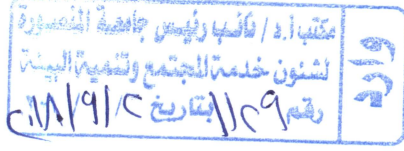 مكتب أ.د / نائب رئيس جامعة المنصورة
لشئون خدمة المجتمع وتنمية البيئة
رقم ١١٢٩ بتاريخ ٢٠١٨/٩/٢
وارد